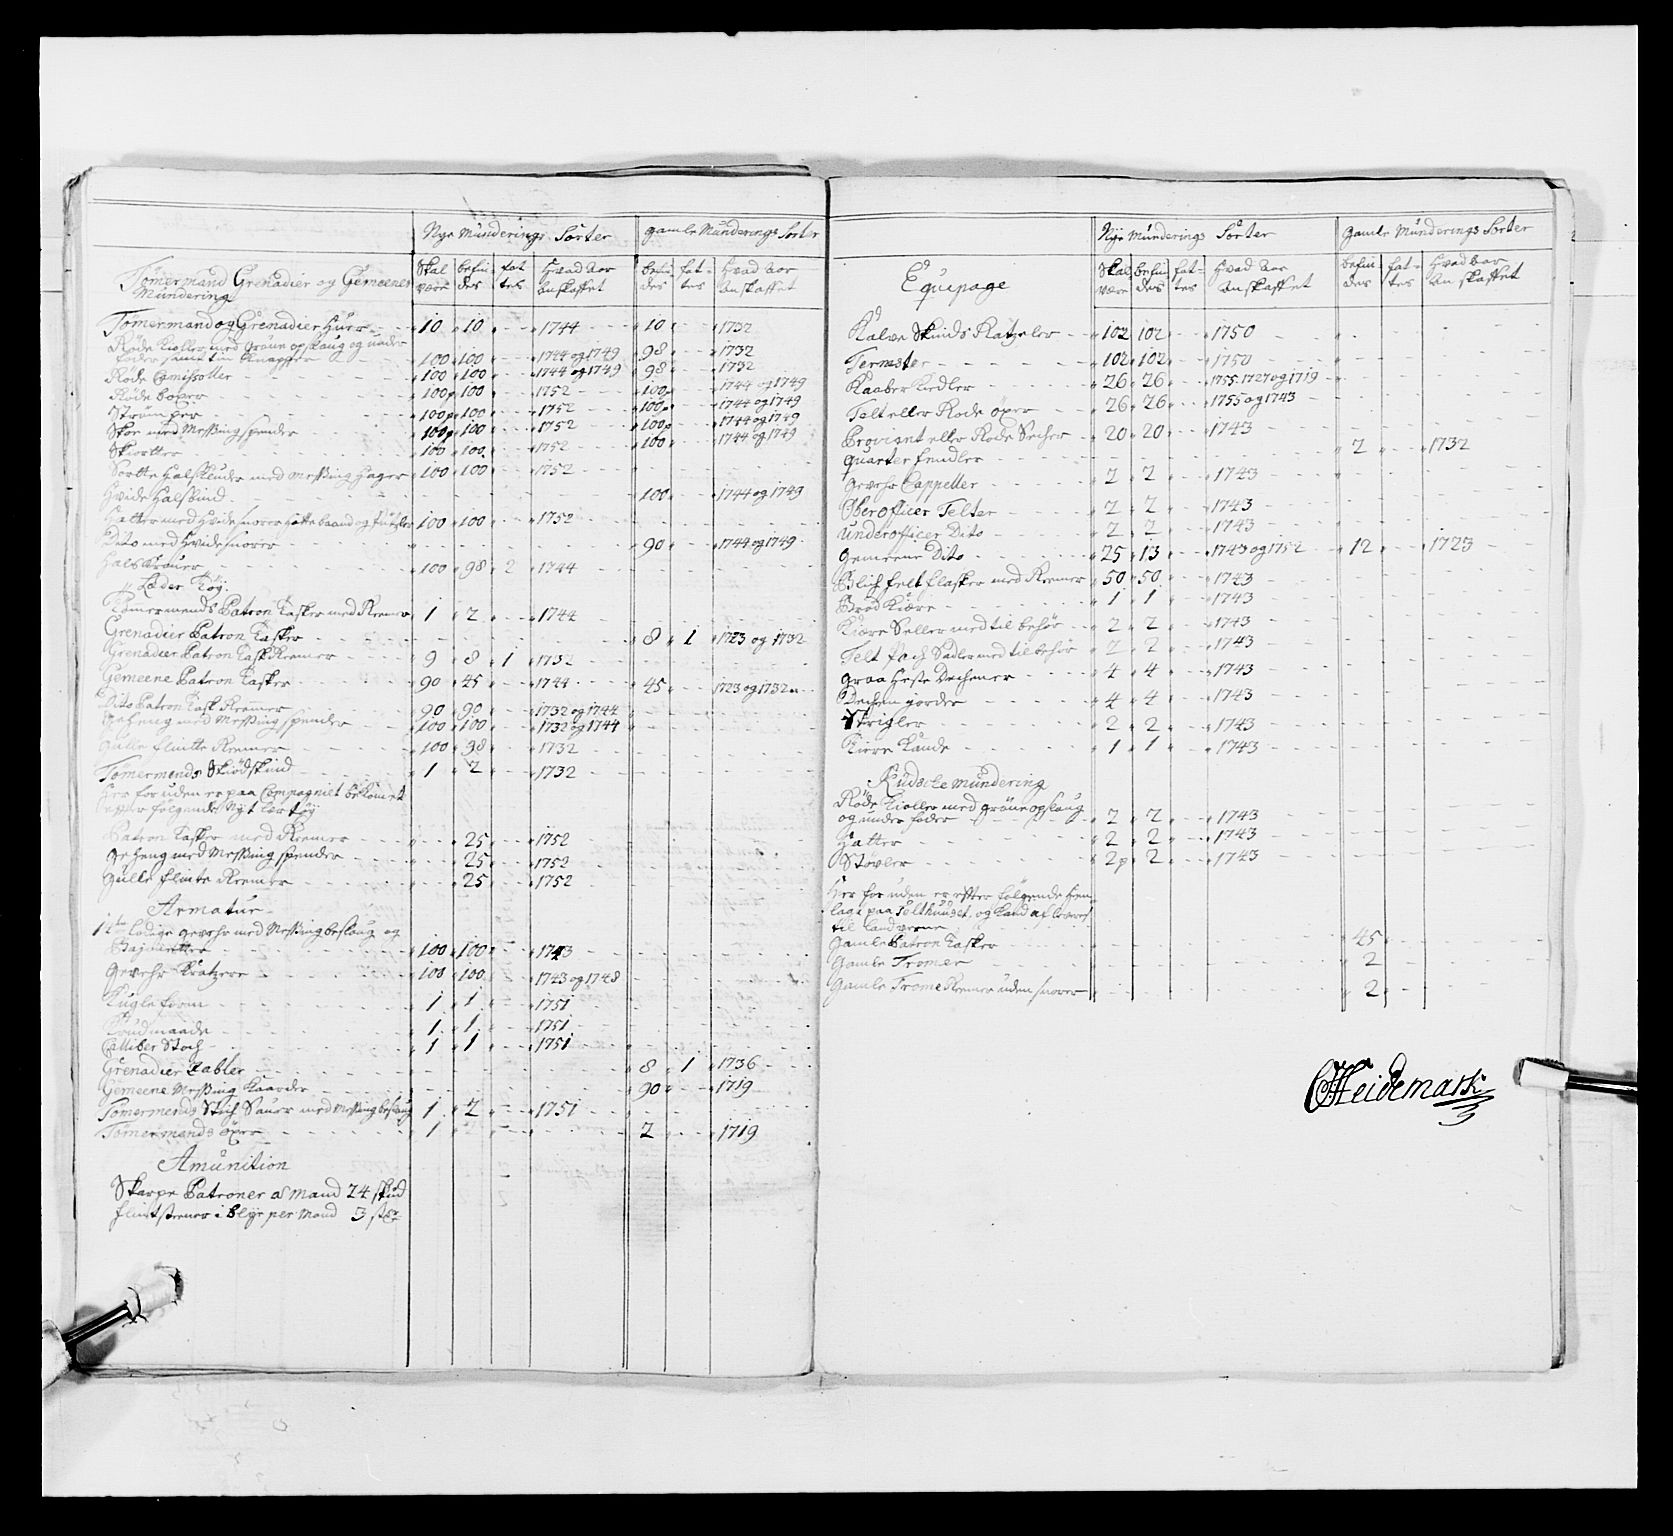 Nye Munderings Sorter gamle Munderings Sorter
Tömermand Grenadier og Gemeenes Mundering
Skal være befin des fat tes Hvad Aar Anskaffet befin des fat tes Hvad Aar Anskaffet
Tömermand og Grenadier Huer 10 10 1744 10 1732
Röde Kioller med Gröne opslaug og under
foder samt tin Knapper 100 100 1744 og 1749 98 1732
Röde Camisoller 100 100 1744 og 1749 98 1732
Röde boxer 100p 100 1752 100p 1744 og 1749
Strömper 100p 100 1752 100p 1744 og 1749
Skoe med Messing spender 100p 100 1752 100p 1744 og 1749
Skiorter 100 100 1752 100 1744 og 1749
Sorte Halskluder med Messing Hager 100 100 1752
Hvide Halsbind 100 1744 og 1749
Hatter med Hvide snorer Hattebaand og 100 100 1752
Dito med Hvide snorer 90 1744 og 1749
100 98 2 1744
Læder Töj
Tömermends Patron Tasker med Remer 1 2 1744
Grenadier Patron Tasker 8 1 1723 og 1732
Grenadier Patron Task Remer 9 8 1 1732
Gemeene Patron Tasker 90 45 1744 45 1723 og 1732
Dito Patron Task Remer 90 90 1732 og 1744
Geheng med Messing spender 100 100 1732 og 1744
Gulle flintte Remer 100 98 1732
Tömermends Skiödskind 1 2 1732
Her foruden er paa Compagniet bekomet
efter fölgende Nyt lærtöj
Patron Tasker med Remer 25 1752
Geheng med Messing spender 25 1752
Gulle flinte Remer 25 1752
Armatur
lodige gevehr med Messing beslaug og
Bajonetter 100 100 1743
Gevehr Kratzere 100 100 1743 og 1748
Kugle form 1 1 1751
Krudmaade 1 1 1751
Calliber Stoch 1 1 1751
Grenadier Zabler 8 1 1736
Gemeene Messing Kaarder 90 1719
Tömermends Stich Sauer med Messing beslaug 1 2 1751
Tömermands öxer 1 2 2 1719
Amunition
Skarpe Patroner a Mand 24 skud
flintstener i blye per Mand 3 st
Nye Munderings Sorter gamle Munderings Sorter
Equipage
Skal være befin des fat tes Hvad Aar Anskaffet befin des fat tes Hvad Aar Anskaffet
Kalve Skinds Ratzeler 102 102 1750
Ternister 102 102 1750
Kaaber Kiedler 26 26 1755. 1727 og 1719
Telt eller Rode öxer 26 26 1755 og 1743
Proviant eller Rode Secher 20 20 1743
quarter fendler 2 1732
Gevehr Cappeller 2 2 1743
Oberofficer Telter 2 2 1743
Underofficer Dito 2 2 1743
Gemeene Dito 25 13 1743 og 1752 12 1723
Blich felt flasker med Remer 50 50 1743
Bröd Kiære 1 1 1743
Kiære Seller med til behör 2 2 1743
Telt Pach Sadler med til behör 2 2 1743
Graa Heste Dechener 4 4 1743
Dechen giorder 4 4 1743
Strigler 2 2 1743
Kiøre Kande 1 1 1743
Kudske Mundering
Röde Kioller med gröne opslaug
og under foder 2 2 1743
Hatter 2 2 1743
Støvler 2p 2 1743
Her foruden er efter fölgende Hen
lagt paa Telthuuset, og kand af leveres
til land verne
Gamle Patron Tasker 45
Gamle Tromer 2
Gamle Trome Remer uden snorer 2
CHeidemark